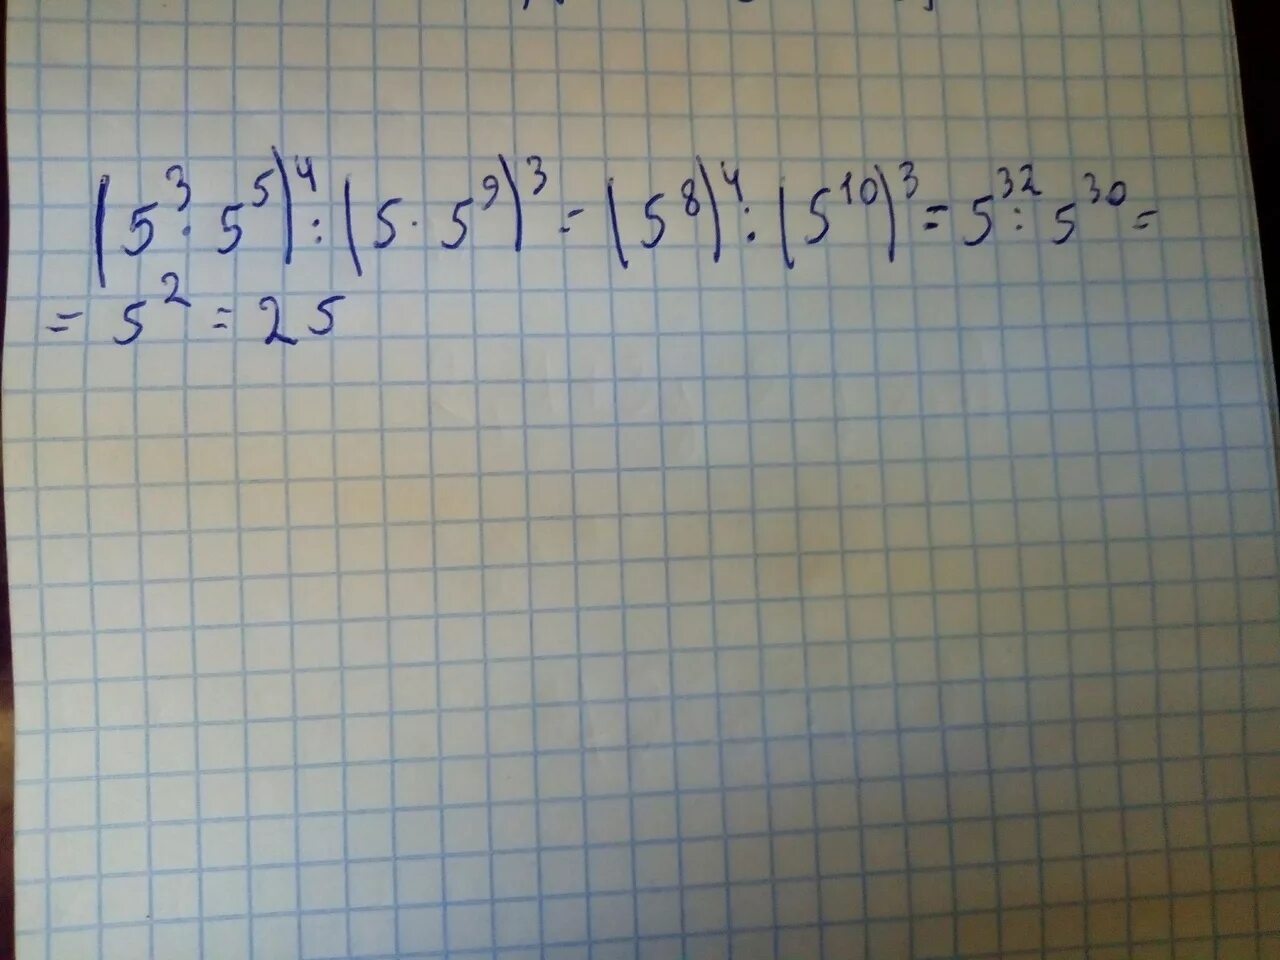 (5³·5⁵)⁴:(5·5⁹)³=(5⁸)⁴:(5¹⁰)³=5³²:5³⁰=
=5²=25